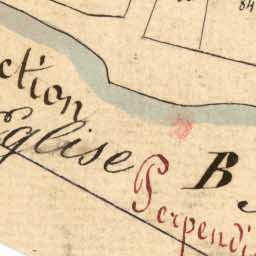 84
ction
Eglise
B
Perpendi